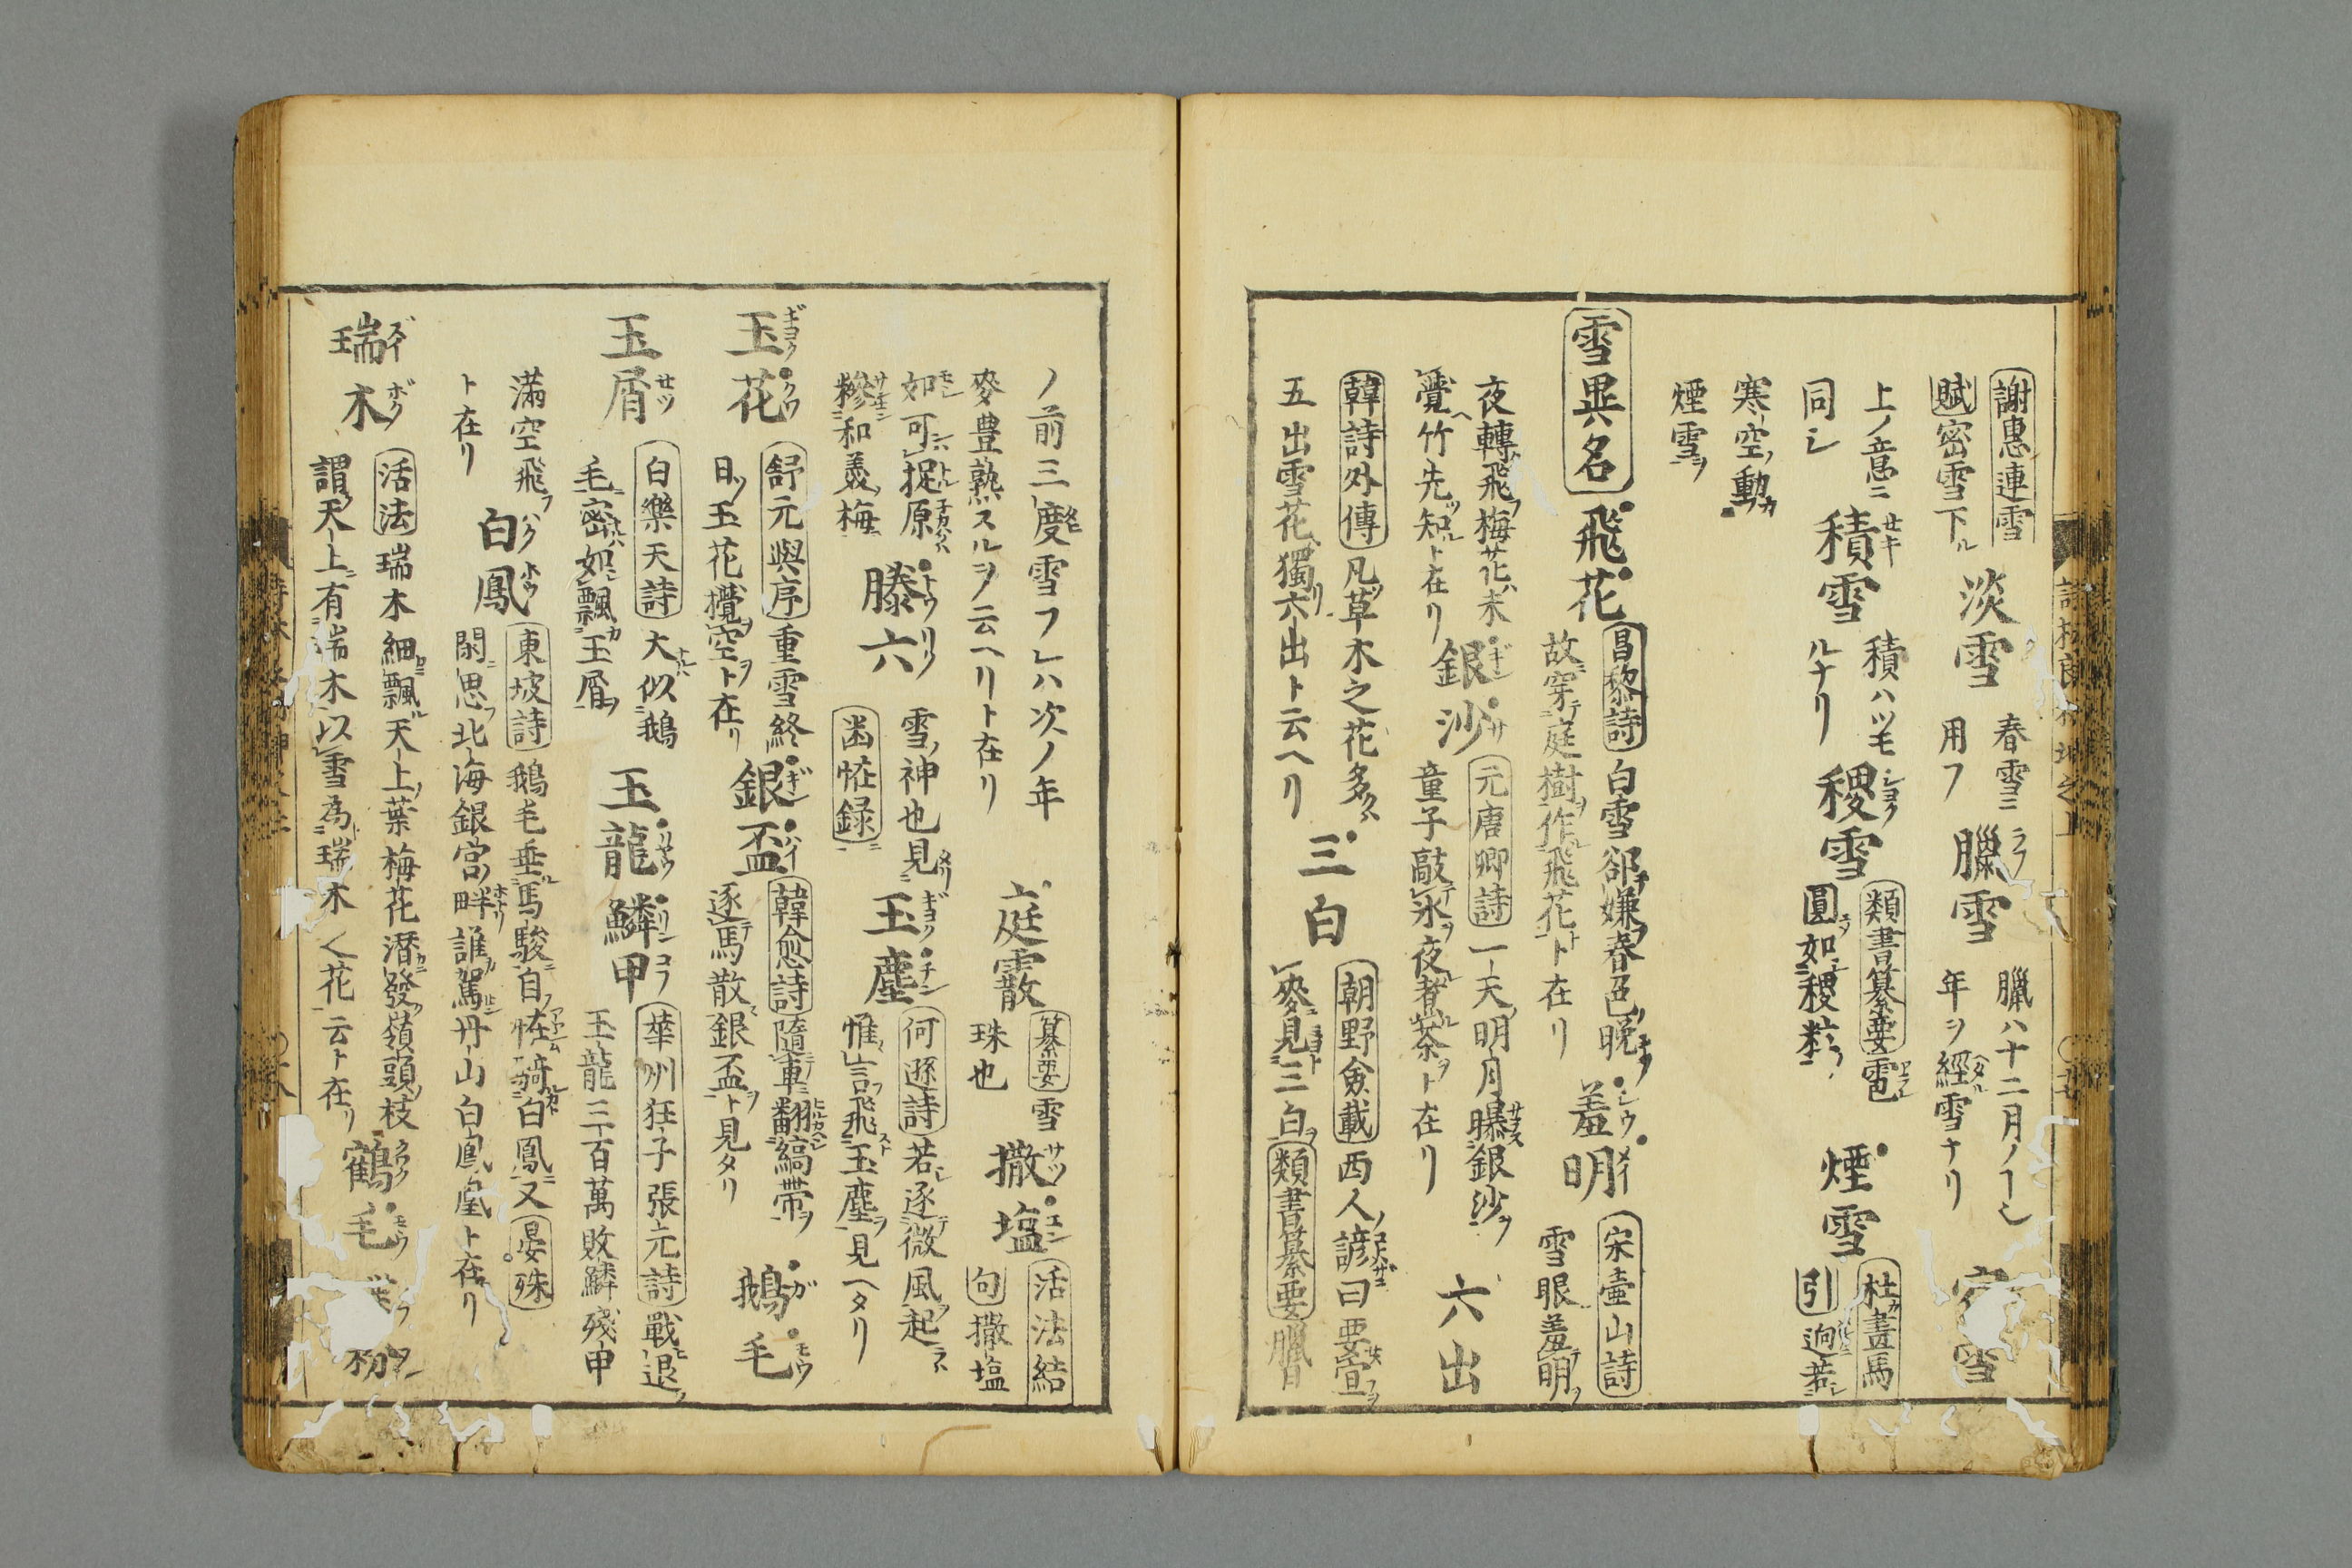 謝惠連雪
賦密雪下ル
淡雪
春雪ニ
用フ
臘雪
臘ハ十二月ノ
年ヲ經ル雪ナリ
雪
上ノ意ニ
同シ
積雪
積ハツモ
ルナリ
稷雪
類書纂要雹
圓如稷粒
煙雪
杜畫馬
引迥若
寒空動
煙雪ヲ
雪異名
飛花
昌黎詩白雪郤嫌春色晚
故穿庭樹作飛花ト在リ
羞明
宋壷山詩
雪眼羞明
夜轉飛梅花未
覺竹先知ト在リ
銀沙
元唐卿詩一天明月曝銀沙
童子敲氷夜煮茶ト在リ
六出
韓詩外傳凡草木之花多
五出雪花獨六出ト云ヘリ
三白
朝野僉載西人諺曰要宣
麥見三白類書纂要臘日
ノ前三度雪フレハ次ノ年
麥豊熟スルヲ云ヘリト在リ
庭霰
纂要雪
珠也
撒塩
活法結
句撒塩
如可捉原
糝和羮梅
滕六
雪ノ神也見
幽恠録
玉塵
何遜詩若逐微風起
惟言飛玉塵見ヘタリ
玉花
舒元輿序重雪終
日玉花攪空ト在リ
銀盃
韓愈詩隨車翻縞帶
逐馬散銀盃ト見タリ
鵝毛
玉屑
白樂天詩大似鵝
毛密如飄玉屑
玉龍鱗甲
華州狂子張元詩戰退
玉龍三百萬敗鱗殘甲
滿空飛
ト在リ
白鳳
東坡詩鵝毛垂馬駿自恠騎白鳳又晏殊
閑思北海銀宮畔誰駕丹山白鳳凰ト在リ
瑞木
活法瑞木細飄天上葉梅花潛發嶺頭枝
謂天上有瑞木以雪為瑞木之花云ト在リ
鶴毛